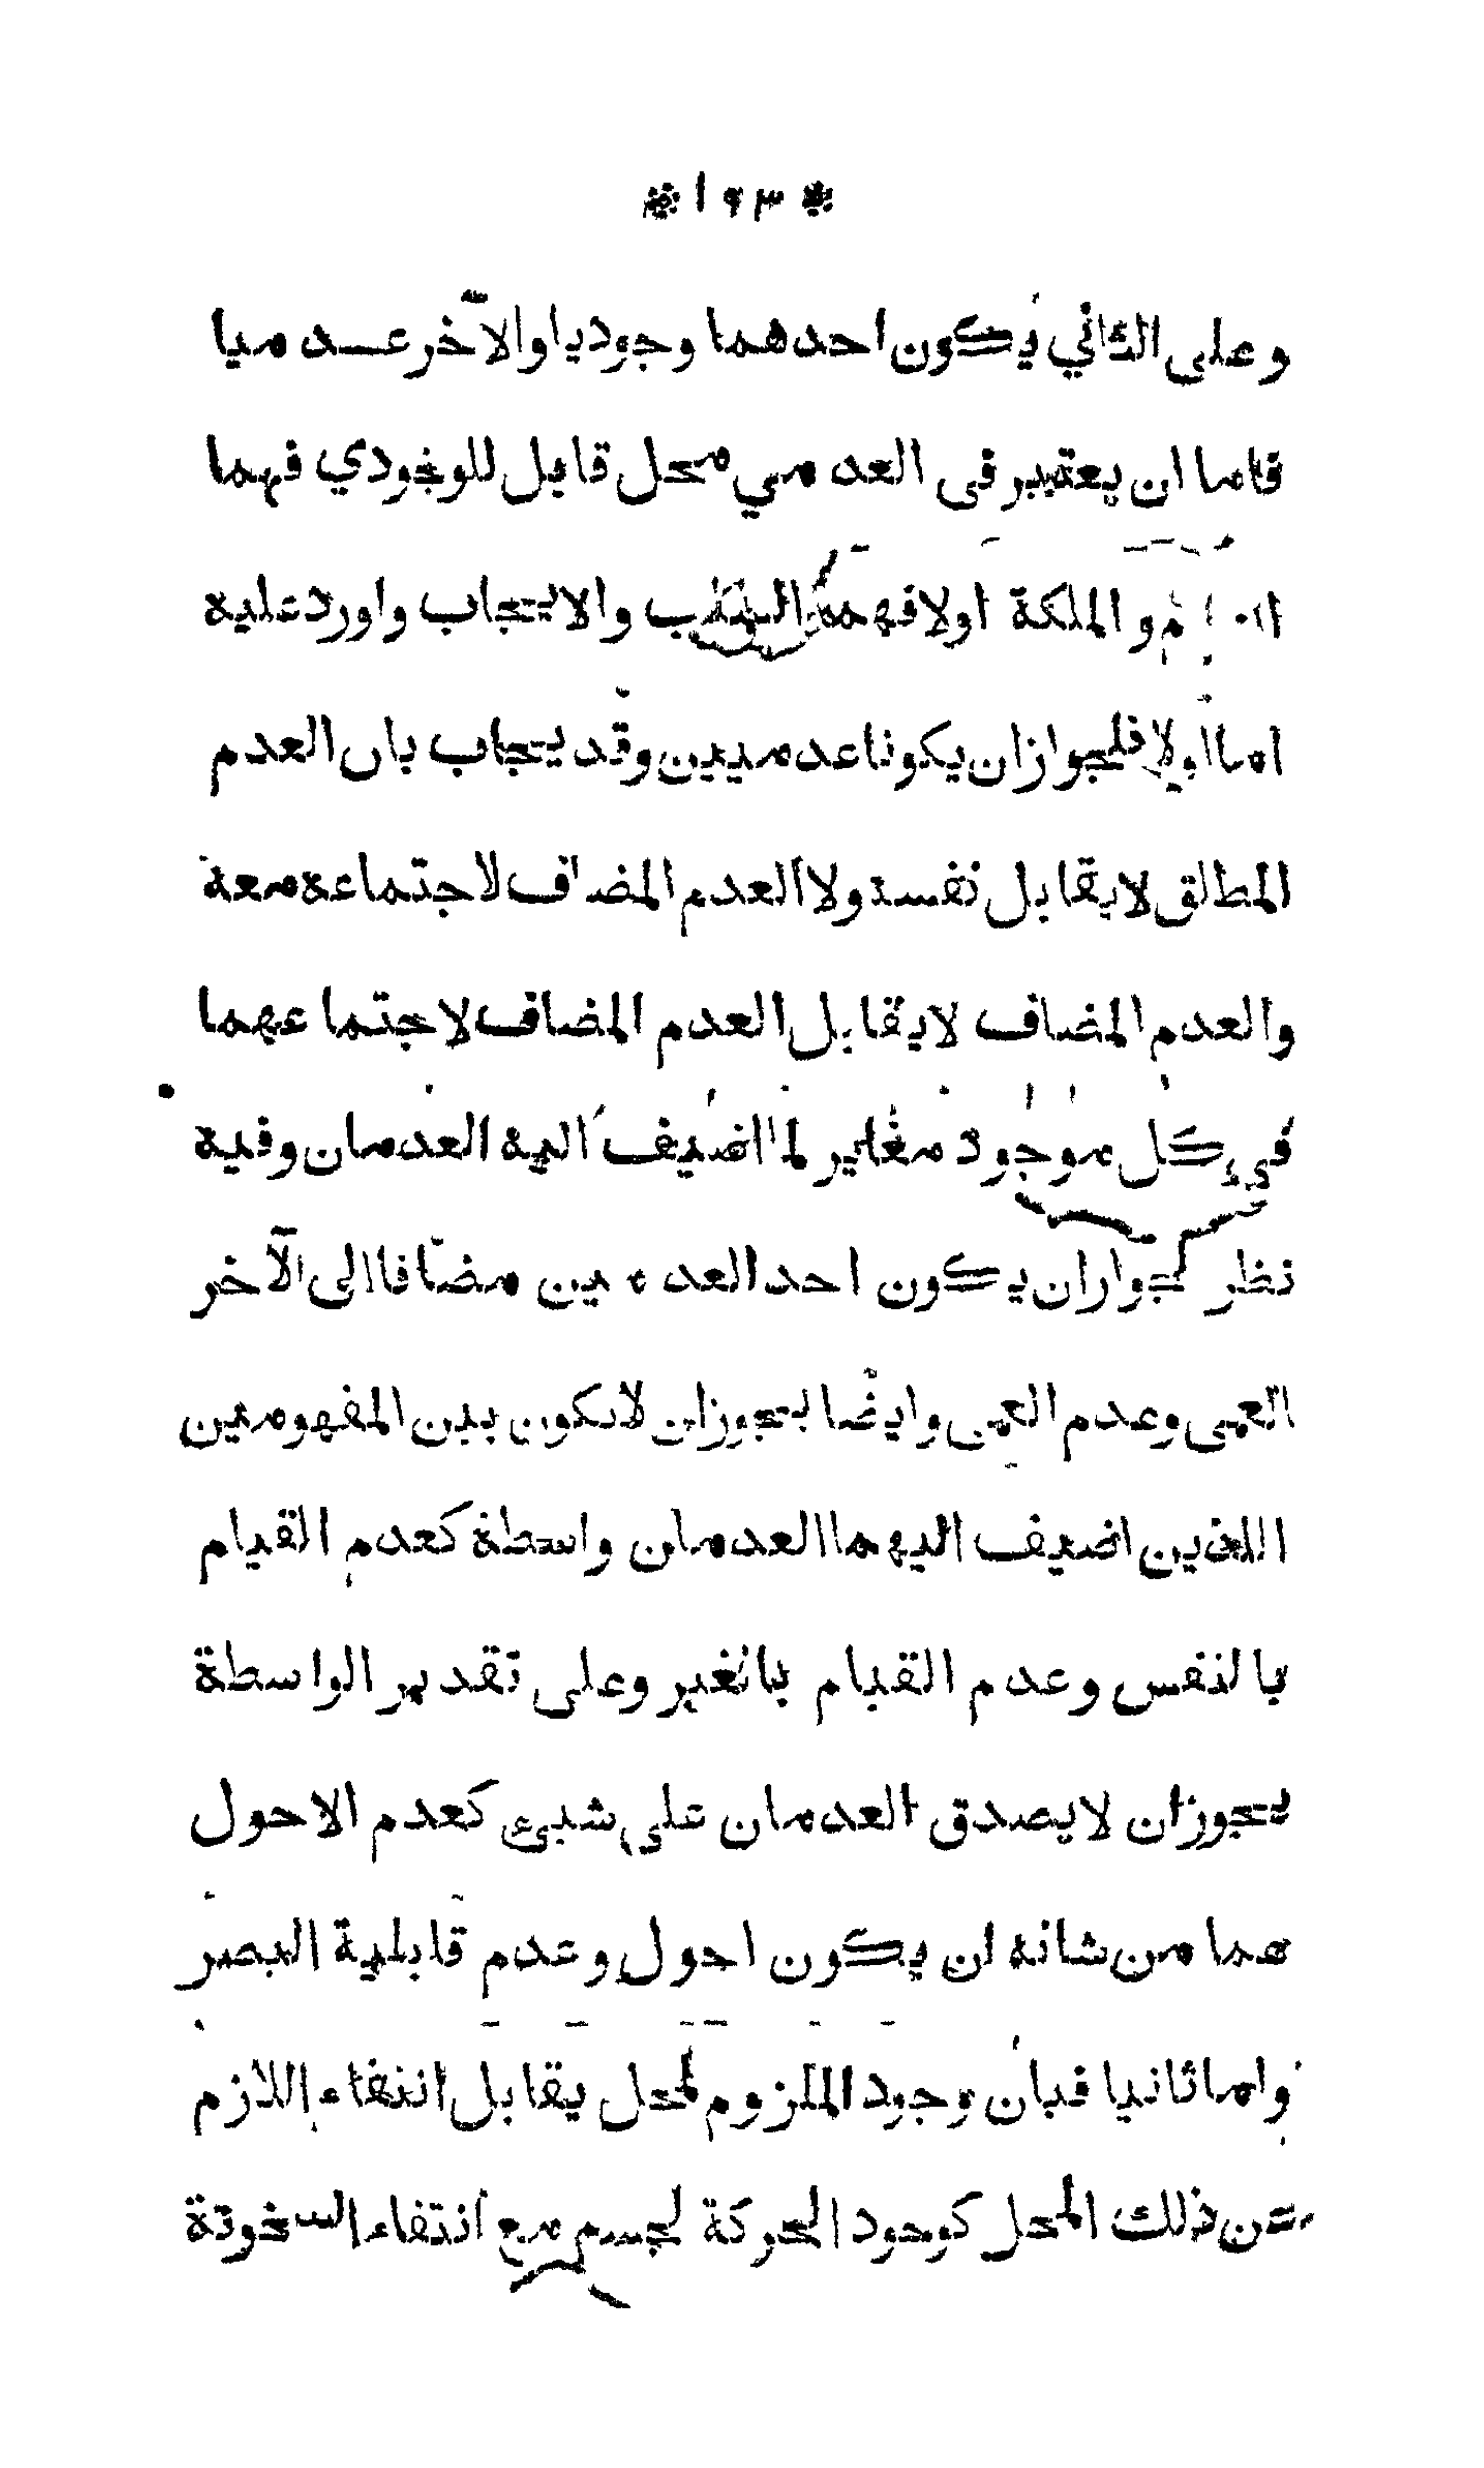 * ١٩٣ *
وعلى الثاني يكون احدهما وجوديا والآخر عدميا
فاما ان يعتبر فى العدمي محل قابل للوجودي فهما
العدم والملكة اولا فهما السلب والايجاب واورد عليه
اما اولا فلجواز ان يكونا عدميين وقد يجاب بان العدم
المطلق لا يقابل نفسه ولا العدم المضاف لاجتماعه معه
والعدم المضاف لا يقابل العدم المضاف لاجتماعهما
في كل موجود مغاير لما اضيف اليه العدمان وفيه
نظر لجواز ان يكون احد العدمين مضافا الى الآخر
العمى وعدم العمى وايضا يجوز ان لا يكون بين المفهومين
اللذين اضيف اليهما العدمان واسطة كعدم القيام
بالنفس وعدم القيام بالغير وعلى تقدير الواسطة
يجوز ان لا يصدق العدمان على شيئ كعدم الاحول
عما من شانه ان يكون احول وعدم قابلية البصر
واما ثانيا فبان وجود الملزوم لمحل يقابل انتفاء اللازم
عن ذلك المحل كوجود الحركة لجسم مع انتفاء السخونة